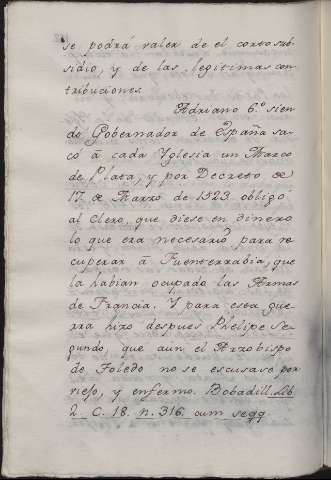 se podrá valer de el corto sub-
sidio, y de las legitimas con
tribuciones
Adriano 6.º sien
do Gobernador de España sa-
có á cada Yglesia un Marco
de Plata, y por Decreto de
17 de Marzo de 1523 obligó
al Clero, que diese en dinero
lo que era necesario para re
cuperar á Fuenterrabia, que
la habian ocupado las Armas
de Francia. Y para esta gue-
rra hizo despues Phelipe Se-
gundo que aun el Arzobispo
de Toledo no se escusase por
viejo, y enfermo. Bobadill. Lib
2. C. 18. n. 316. cum segg